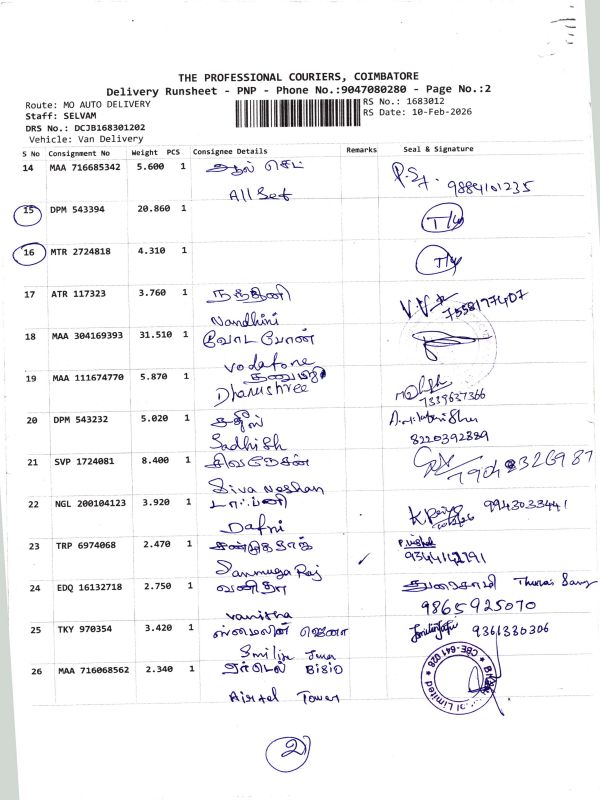 THE PROFESSIONAL COURIERS, COIMBATORE
Delivery Runsheet - PNP - Phone No.:9047080280 - Page No.:2
Route: MO AUTO DELIVERY
RS No.: 1683012
Staff: SELVAM
RS Date: 10-Feb-2026
DRS No.: DCJB168301202
Vehicle: Van Delivery
S No Consignment No Weight PCS Consignee Details Remarks Seal & Signature
14 MAA 716685342 5.600 1 ஆல் செட் P.S. 9884101235
All Set
15 DPM 543394 20.860 1 T/y
16 MTR 2724818 4.310 1 T/y
17 ATR 117323 3.760 1 நந்தினி V.V. 7558177407
Nandhini
18 MAA 304169393 31.510 1 வோடபோன்
Vodafone
19 MAA 111674770 5.870 1 தனுஸ்ரீ
Dhanushree 7339637366
20 DPM 543232 5.020 1 சதீஸ்
Sadhish 8220392889
21 SVP 1724081 8.400 1 சிவநேசன் 79048326987
Siva Neshan
22 NGL 200104123 3.920 1 டாப்னி 9943033441
Dafni
23 TRP 6974068 2.470 1 சண்முகராஜ்
Sanmuga Raj 9344142791
24 EDQ 16132718 2.750 1 வனிதா துரைசாமி Thurai Samy
Vanitha 9865925070
25 TKY 970354 3.420 1 ஸ்மைலின் ஜெனா 9361330306
Smilin Jena
26 MAA 716068562 2.340 1 ஏர்டெல் டவர்
Airtel Tower
CBE-641 028
Limited
2